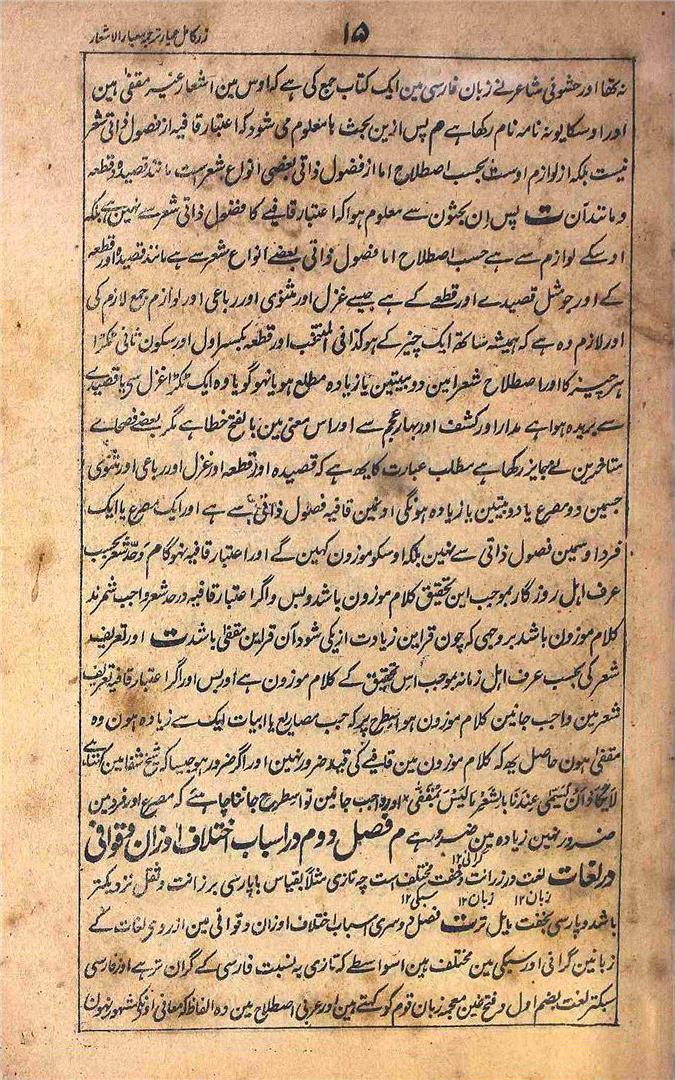 ۱۵
زر کامل عیار ترجمہ معیار الاشعار
نہ تھا اور حشوئی شاعر نے زبان فارسی مین ایک کتاب جمع کی ہے کہ اوس مین اشعار غیر مقفیٰ ہین
اور اوسکا یوبہ نامہ نام رکھا ہے م پس ازین بحث ہا معلوم می شود کہ اعتبار قافیہ از فصول ذاتی شعر
نیست بلکہ از لوازم اوست بحسب اصطلاح اما از فصول ذاتی بعضی انواع شعر است مانند قصیدہ و قطعہ
و مانند آن ت پس ان بحثون سے معلوم ہوا کہ اعتبار قافیے کا فصول ذاتی شعر سے نہین ہے بلکہ
اوسکے لوازم سے ہے حسب اصطلاح اما فصول ذاتی بعضے انواع شعر سے ہے مانند قصیدہ اور قطعہ
کے اور جو مثل قصیدے اور قطعے کے ہے جیسے غزل اور مثنوی اور رباعی اور لوازم جمع لازم کی
اور لازم وہ ہے کہ ہمیشہ ساتھ ایک چیز کے ہو کذا فی المنتخب اور قطعہ بکسر اول اور سکون ثانی ٹکڑا
ہر چیز کا اور اصطلاح شعرا مین دو بیتین یا زیادہ مطلع ہو یا نہو گویا وہ ایک ٹکڑا غزل سی یا قصیدے
سے بریدہ ہوا ہے مدار اور کشف اور بہار عجم سے اور اس معنی مین بالفتح خطا ہے مگر بعضے فصحاے
متاخرین نے مجایز رکھا ہے مطلب عبارت کا یہ ہے کہ قصیدہ اور قطعہ اور غزل اور رباعی اور مثنوی
جسین دو مصرع یا دو بیتین یا زیادہ ہونگی اونمین قافیہ فصول ذاتی سے ہے اور ایک مصرع یا ایک
فرد اوسمین فصول ذاتی سے نہین بلکہ اوسکو موزون کہین گے اور اعتبار قافیہ نہوگا م و حد شعر بحسب
عرف اہل روزگار بموجب این تحقیق کلام موزون باشد و بس و اگر اعتبار قافیہ در حد شعر واجب شمرند
کلام موزون باشد بر وجہی کہ چون قراین زیادت از یکی شود آن قراین مقفیٰ باشد ت اور تعریف
شعر کی بحسب عرف اہل زمانہ بموجب اس تحقیق کے کلام موزون ہے اور بس اور اگر اعتبار قافیہ تعریف
شعر مین واجب جانین کلام موزون ہو اسطرح پر کہ جب مصاریع یا ابیات ایک سے زیادہ ہون وہ
مقفیٰ ہون حاصل یہ کہ کلام موزون مین قافیے کی قید ضرور نہین اور اگر ضرور ہو جیسا کہ شیخ شفا مین کہتا ہے
لا یکاد ان یسمی عندنا بالشعر ما لیس بمقفی اور واجب جانین تو اسطرح جاننا چاہئے کہ مصرع اور فرد مین
ضرور نہین زیادہ مین ضرور ہے م فصل دوم در اسباب اختلاف اوزان و قوافی
در لغات لغت در رزانت و خفت مختلف است چہ تازی مثلاً بقیاس با پارسی برزانت و ثقل نزدیکتر
باشد و پارسی بخفت مایل ترت فصل دوسری اسباب اختلاف اوزان و قوافی مین از روی لغات کے
زبانین گرانی اور سبکی مین مختلف ہین اسواسطے کہ تازی بہ نسبت فارسی کے گران تر ہے اور فارسی
سبکتر لغت بضم اول و فتح غین معجمہ زبان قوم کو کہتے ہین اور عربی اصطلاح مین وہ الفاظ کہ معانی اونکے مشہور نہون